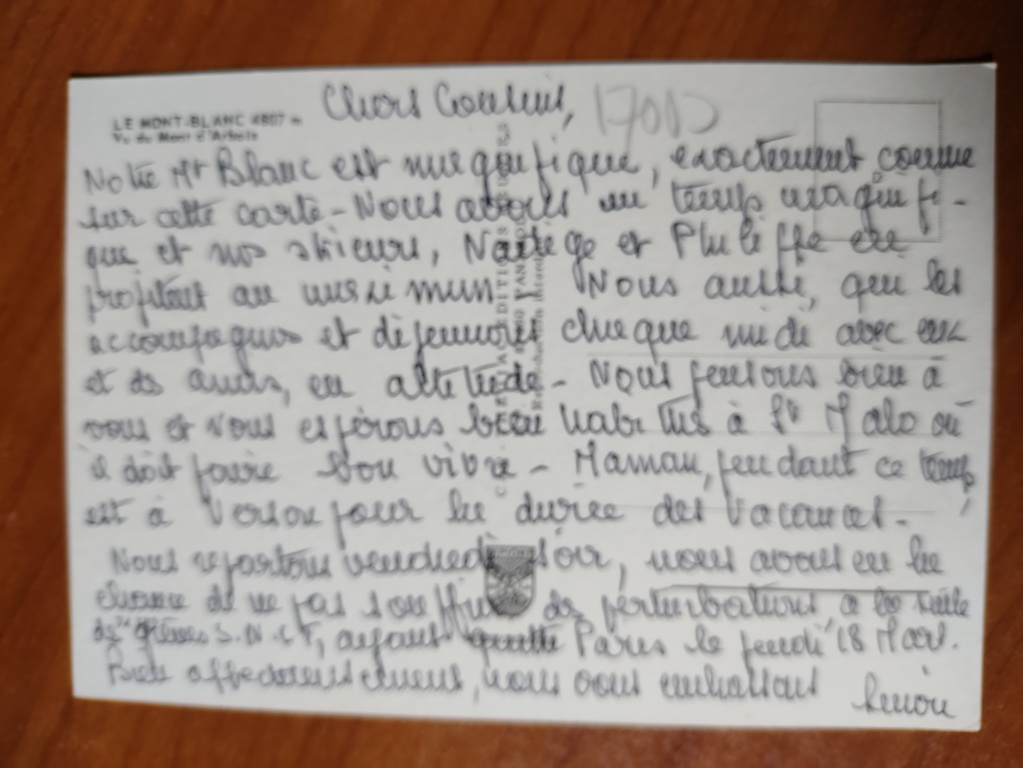 LE MONT-BLANC 4807 m
Vu du Mont d'Arbois
Chers Cousins,
Notre Mt Blanc est magnifique, exactement comme
sur cette carte - Nous avons un temps magnifi-
que et nos skieurs, Nadège et Philippe en
profitent au maximum. Nous aussi, qui les
accompagnons et déjeunons chaque midi avec eux
et des amis, en altitude - Nous pensons bien à
vous et vous espérons bien habitués à St Malo où
il doit faire bon vivre - Maman, pendant ce temps,
est à pour la durée des vacances.
Nous repartons vendredi soir, nous avons eu la
chance de ne pas souffrir de perturbations à la suite
des grèves S.N.C.F, ayant quitté Paris le jeudi 18 Mars.
Bien affectueusement, nous vous embrassons